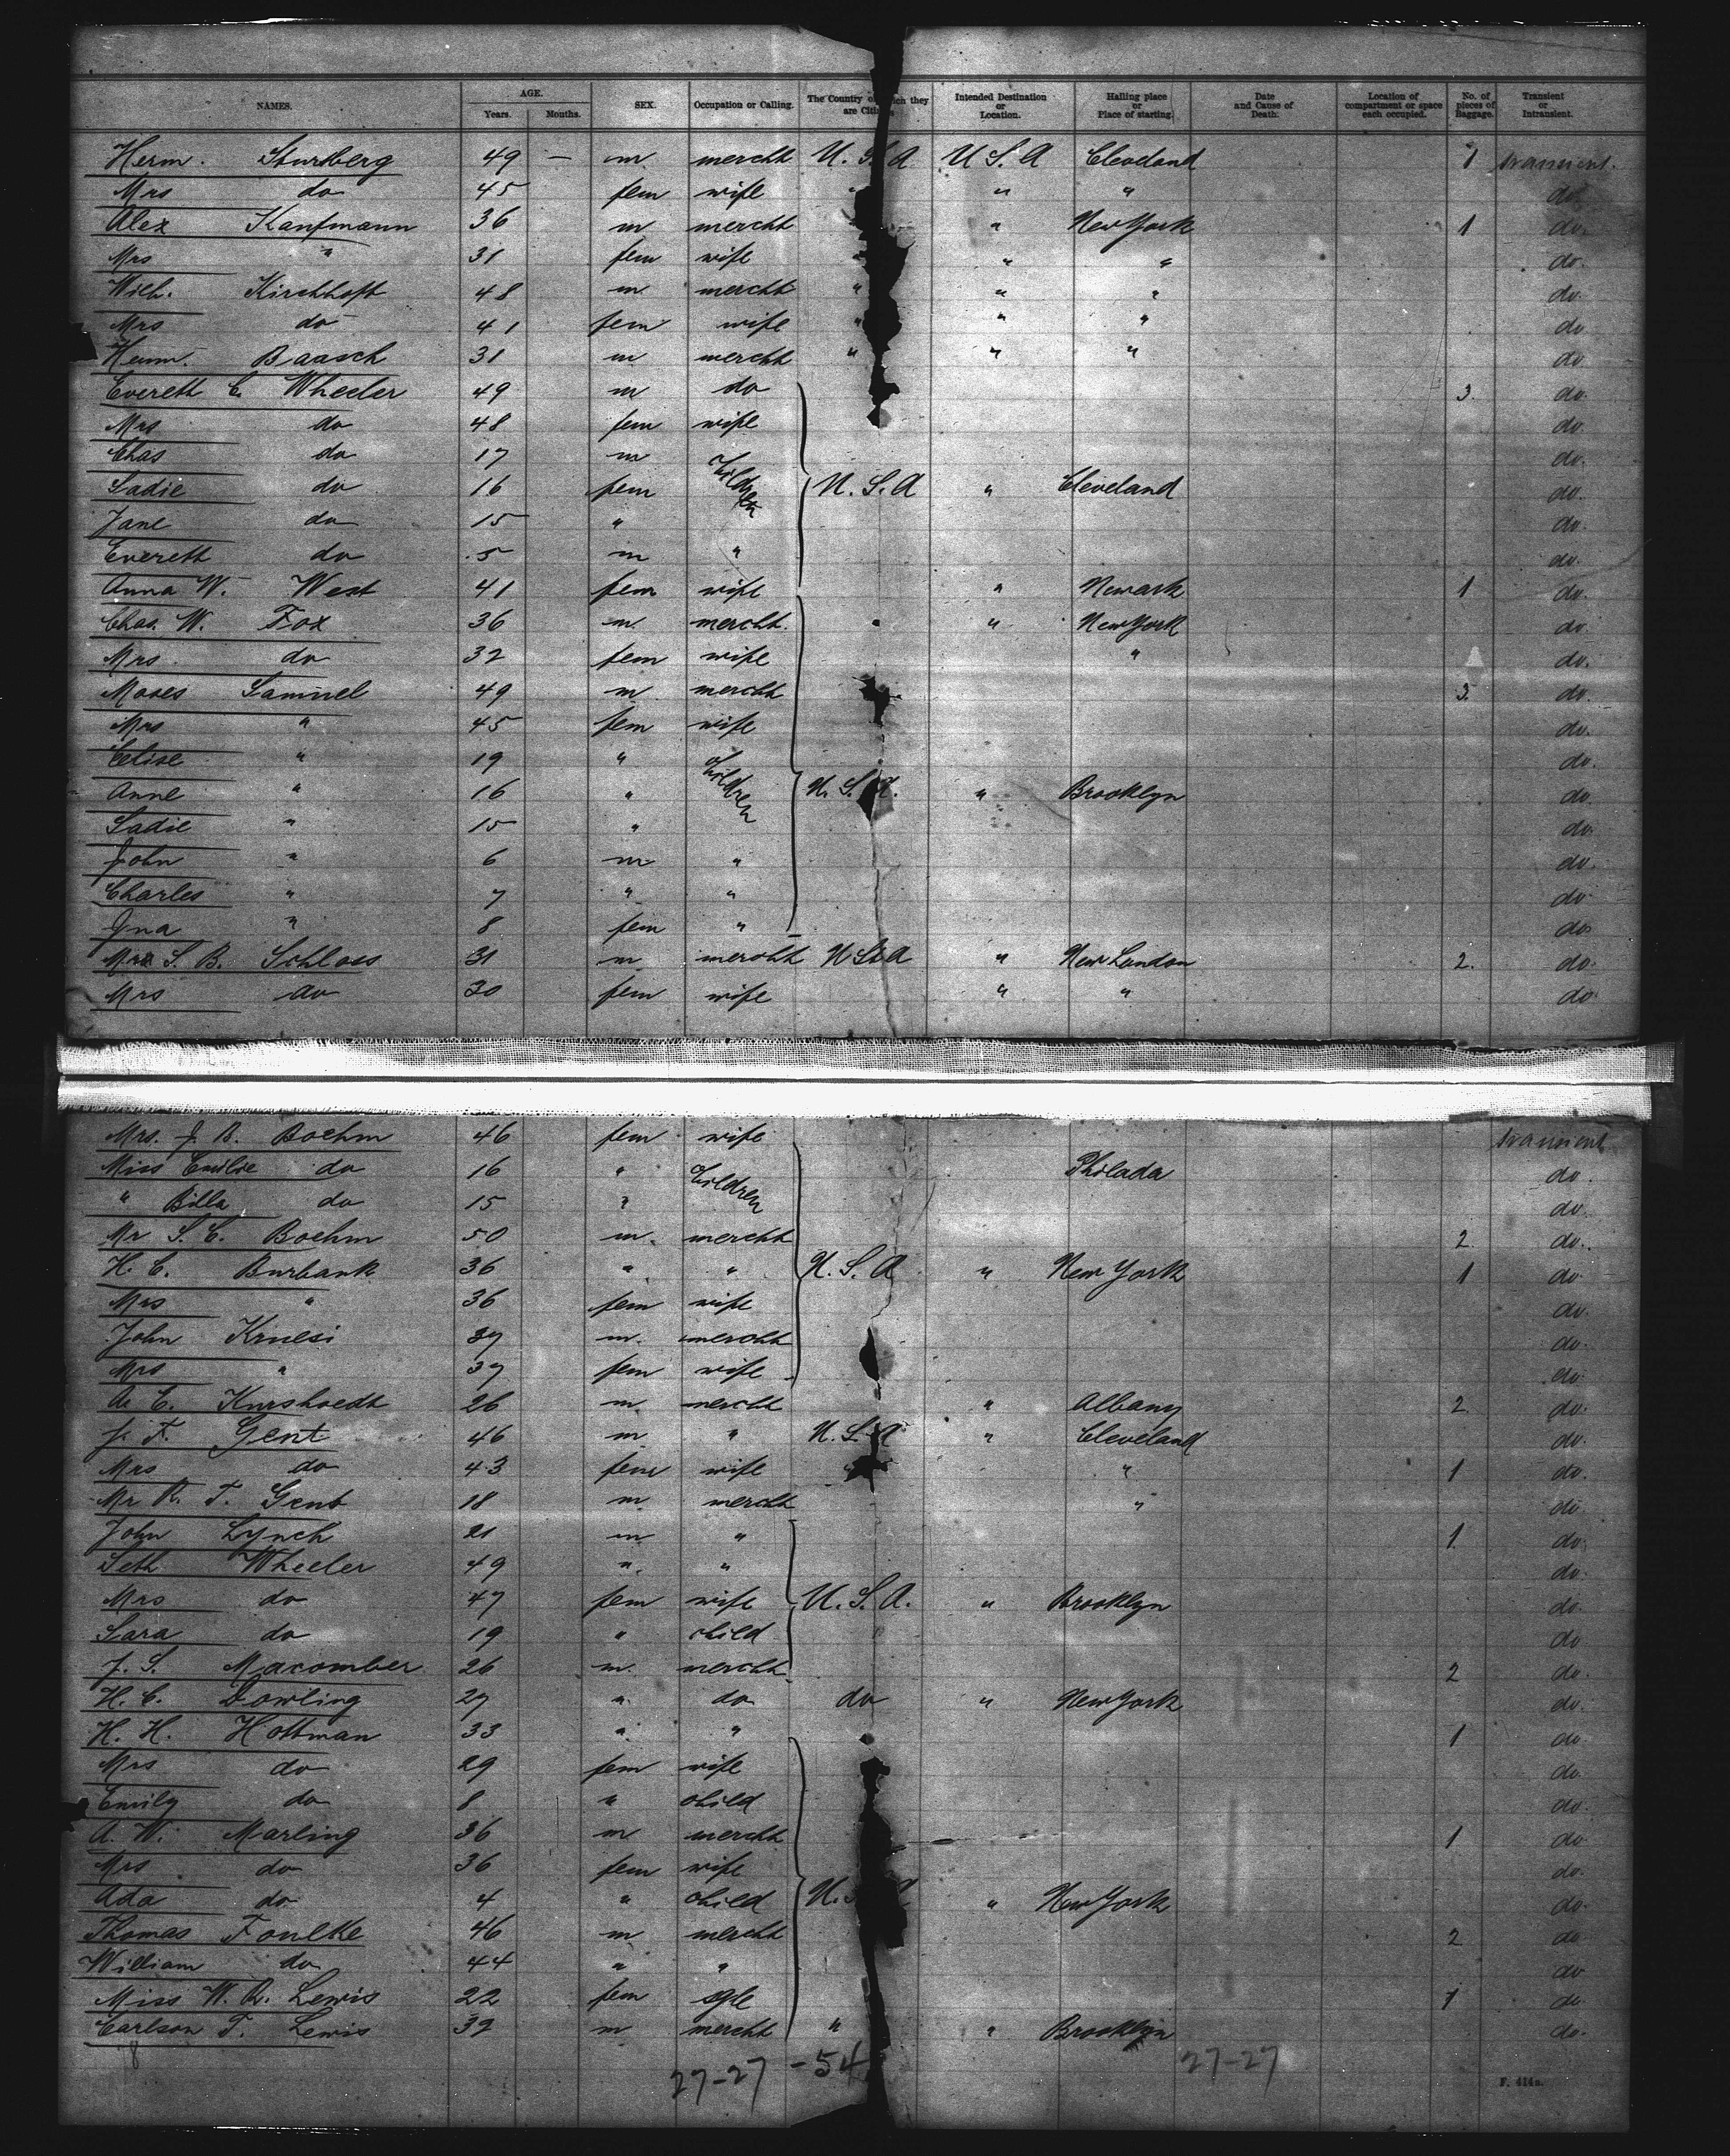 NAMES. AGE. Years. Months. SEX. Occupation or Calling. The Country of which they are Citizens Intended Destination or Location. Hailing place or Place of starting. Date and Cause of Death. Location of compartment or space each occupied. No. of pieces of Baggage. Transient or Intransient.
Herm. Sturberg 49 — m mercht U.S.A U S. A Cleveland 1 transient.
Mrs do 45 fem wife " " " do.
Alex Kaufmann 36 m mercht " " New York 1 do.
Mrs " 31 fem wife " " " do.
Wilh. Kirchhoff 48 m mercht " " " do.
Mrs do 41 fem wife " " " do
Herm. Baasch 31 m mercht " " " do.
Everett C. Wheeler 49 m do 3. do.
Mrs do 48 fem wife do.
Chas do 17 m Children do.
Sadie do 16 fem U.S.A " Cleveland do.
Jane do 15 " do.
Everett do 5 m " do.
Anna W. West 41 fem wife " Newark 1 do.
Chas. W. Fox 36 m mercht. " " New York do.
Mrs. do 32 fem wife " do.
Moses Samuel 49 m mercht 3. do.
Mrs " 45 fem wife do.
Celise " 19 " Children do.
Anne " 16 " U.S.A. " Brooklyn do.
Sadie " 15 " do.
John " 6 m " do.
Charles " 7 " " do.
Ina " 8 fem " do.
S. B. Schloss 31 m mercht U S A " New London 2. do.
Mrs do 30 fem wife " " do.
Mrs. J. B. Boehm 46 fem wife transient
Miss Emilie do 16 " Children Philada do.
" Billa do 15 " do.
Mr S. C. Boehm 50 m. mercht 2. do.
H. C. Burbank 36 " " U.S.A " New York 1 do.
Mrs " 36 fem wife do.
John Kruesi 37 m. mercht do.
Mrs " 37 fem wife do.
A. C. Kursheedt 26 m mercht " Albany 2. do.
J. T. Gent 46 m " U.S.A " Cleveland do.
Mrs do 43 fem wife " 1 do.
Mr R. T. Gent 18 m mercht " do.
John Lynch 21 m " 1. do.
Seth Wheeler 49 " " do.
Mrs do 47 fem wife U.S.A. " Brooklyn do.
Sara do 19 " child do
J. S. Macomber 26 m. mercht 2 do.
H. C. Dowling 27 " do do " New York do.
H. H. Hottman 33 " " 1 do.
Mrs do 29 fem wife do.
Emily do 8 " child do.
A. W. Marling 36 m mercht 1 do
Mrs do 36 fem wife do.
Ada do. 4 " child U.S.A " New York do.
Thomas Foulke 46 m mercht 2 do
William do 44 " " do
Miss W. R. Lewis 22 fem sgle 1 do.
Carlson T. Lewis 32 m mercht " " Brooklyn do.
27-27 -54 27-27
F. 414a.